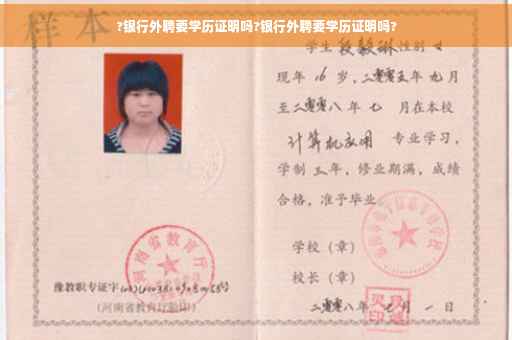 ?银行外聘要学历证明吗?银行外聘要学历证明吗?
样本
学生 段毅琳 性别 女
现年 16 岁,二零零五年九月
至二零零八年七 月在本校
计算机应用 专业学习,
学制 三 年,修业期满,成绩
合格,准予毕业
学校(章)
校长(章)
二零零八年 七 月 一 日
河南省教育厅
豫教职专证字
(河南省教育厅验印)